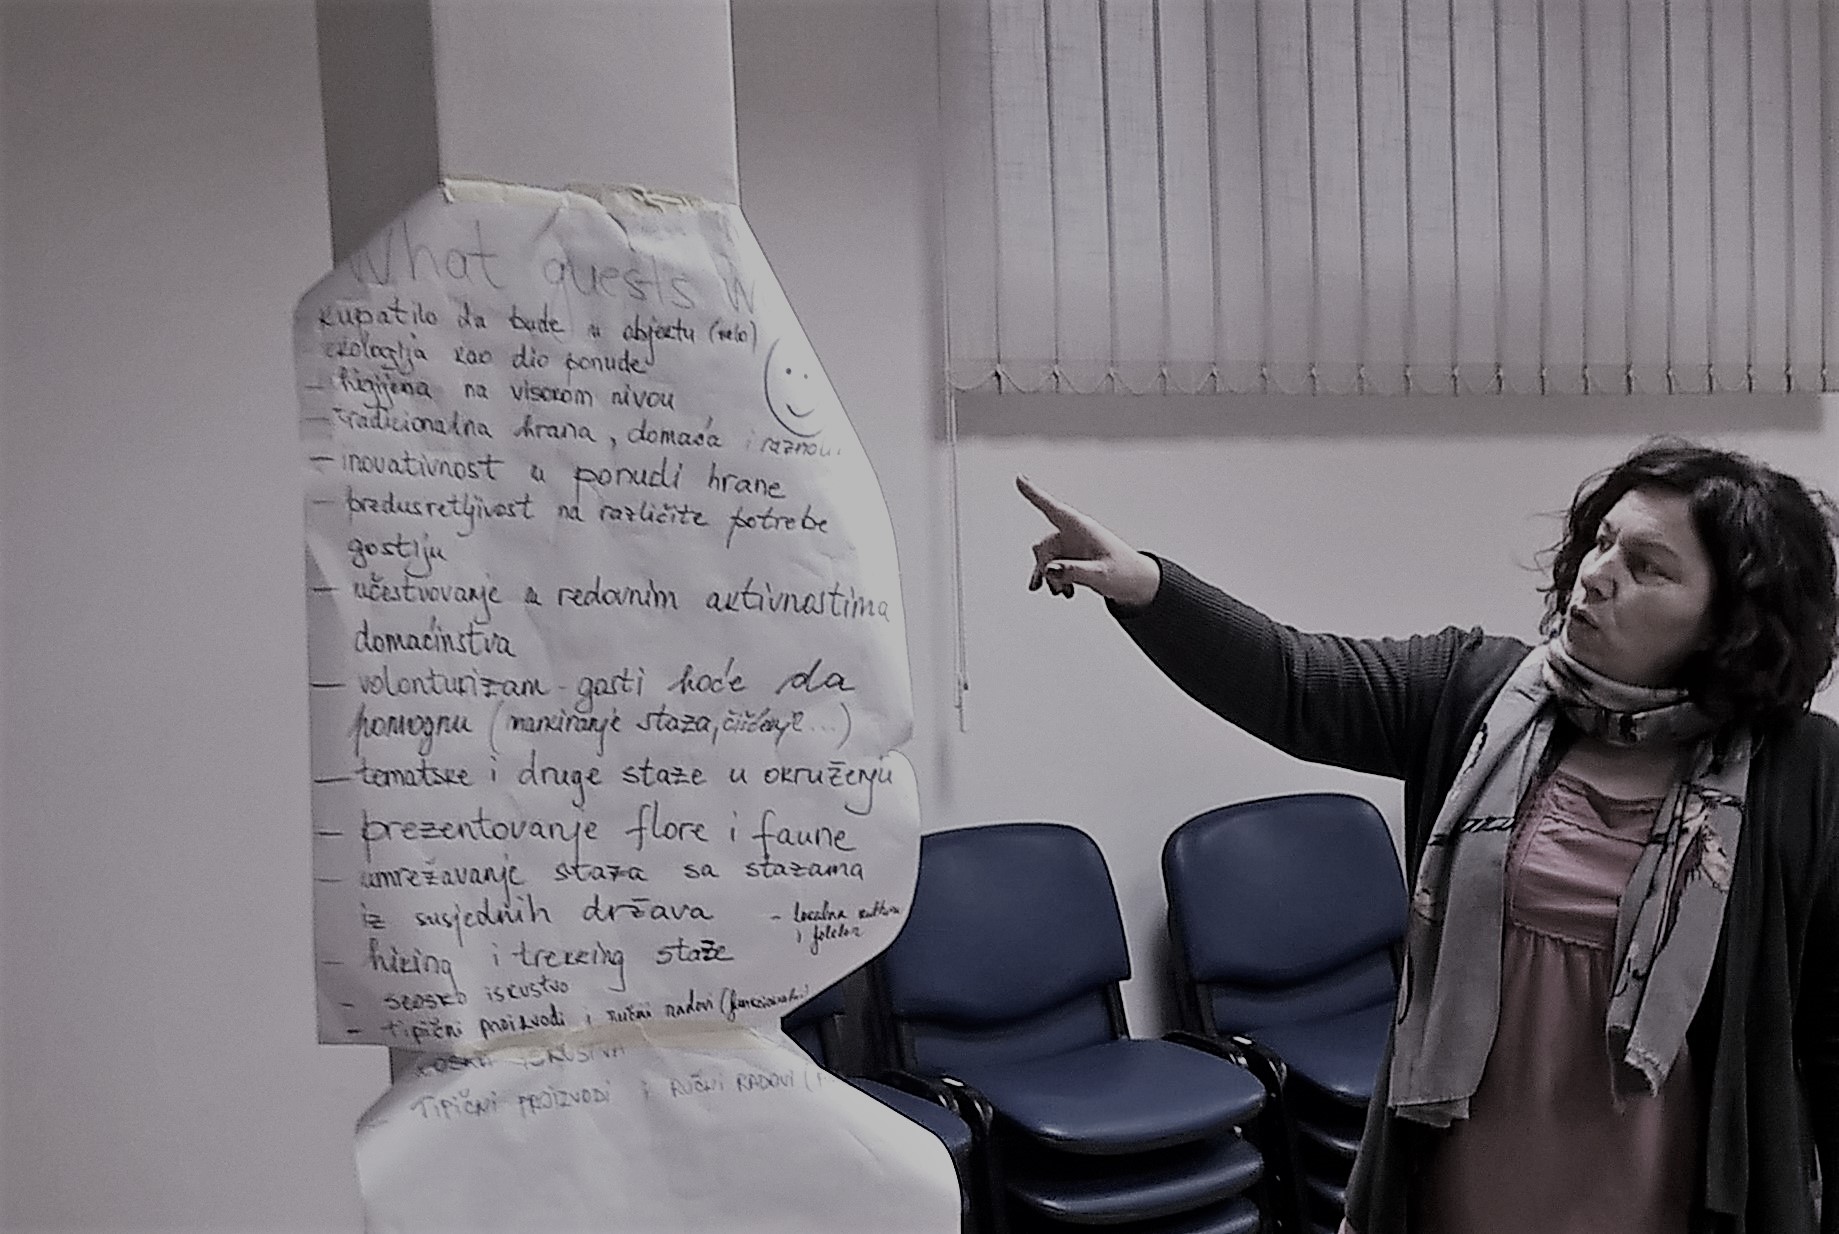 What guests W
kupatilo da bude u objektu
ekologija kao dio ponude
- higijena na visokom nivou
- tradicionalna hrana, domaća i raznov
- inovativnost u ponudi hrane
- predusretljivost na različite potrebe
gostiju
- učestvovanje u redovnim aktivnostima
domaćinstva
- volonturizam - gosti hoće da
pomognu (markiranje staza, čišćenje...)
- tematske i druge staze u okruženju
- prezentovanje flore i faune
- umrežavanje staza sa stazama
iz susjednih država
- lokalna kultura
i folklor
- hiking i trekking staze
- seosko iskustvo
- tipični proizvodi i ručni radovi
TIPIČNI PROIZVODI I RUČNI RADOVI (